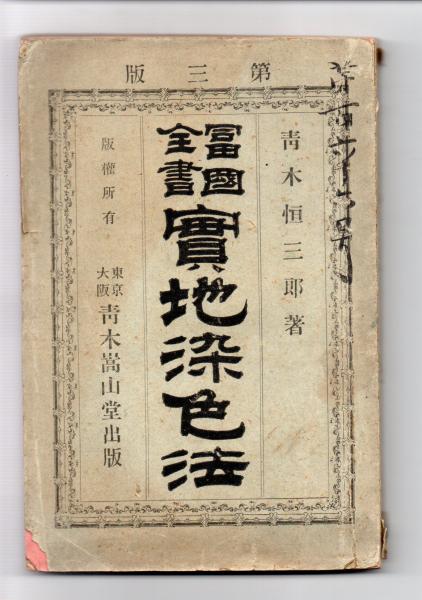 第三版
青木恒三郎著
冨國全書
實地染色法
版權所有
東京
大阪
青木嵩山堂出版